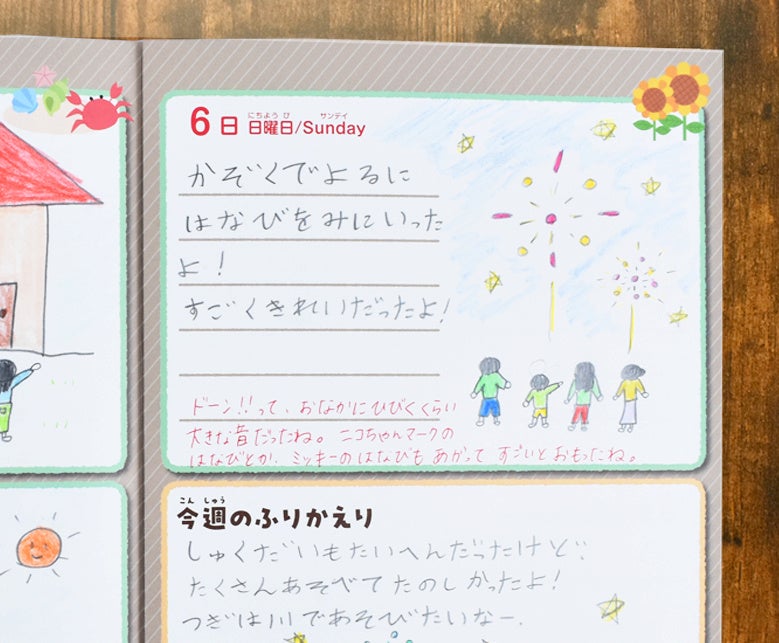 6日 日曜日/Sunday
にちようび サンデイ
かぞくでよるに
はなびをみにいった
よ!
すごくきれいだったよ!
ドーン!!って、おなかにひびくくらい
大きな音だったね。ニコちゃんマークの
はなびとか、ミッキーのはなびもあがってすごいとおもったね。
こんしゅう
今週のふりかえり
しゅくだいもたいへんだったけど、
たくさんあそべてたのしかったよ!
つぎは川であそびたいなー。